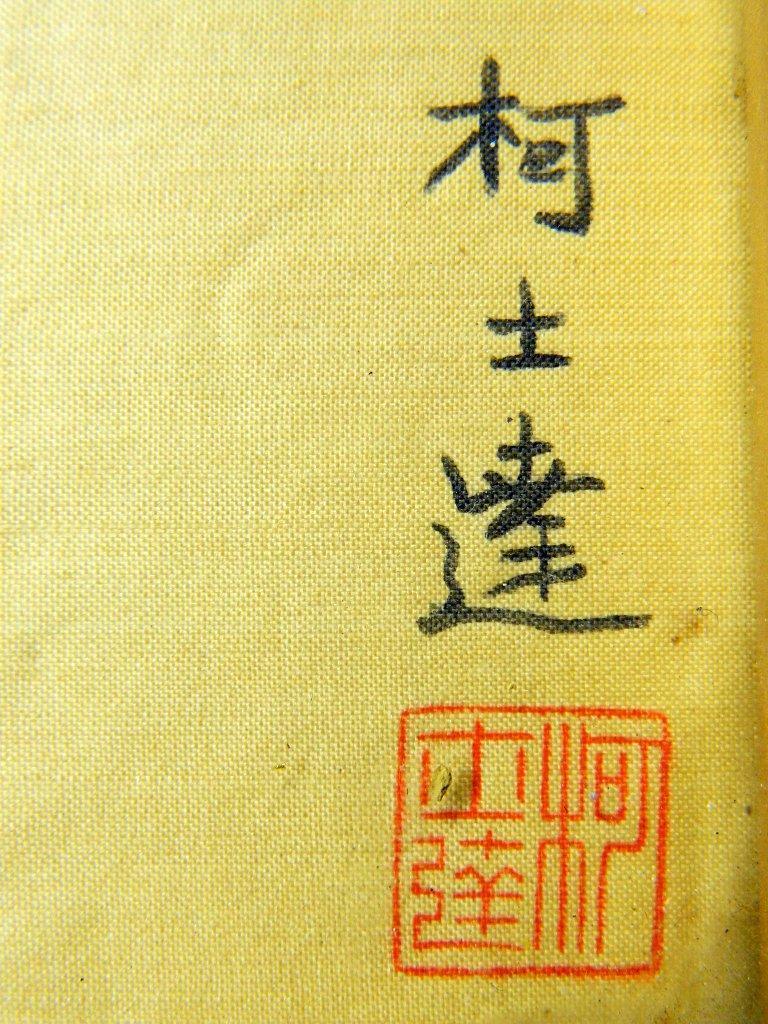 柯士達
柯士達